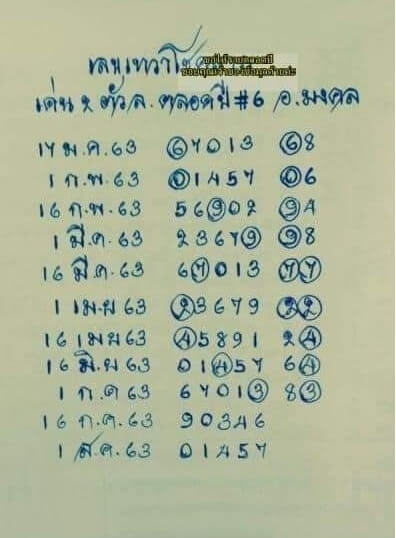 เลขเทวาโชค
ขอให้รวยตลอดปี
ขอบคุณเจ้าของข้อมูลด้วยค่ะ
เด่น 2 ตัว ล. ตลอดปี #6 อ. มงคล
17 ม.ค. 63 67013 68
1 ก.พ. 63 01457 06
16 ก.พ. 63 56902 94
1 มี.ค. 63 23679 98
16 มี.ค. 63 67013 77
1 เม.ย 63 23679 22
16 เมย 63 45891 24
16 มิ.ย 63 01457 64
1 ก.ค 63 67013 83
16 ก.ค. 63 90346
1 ส.ค. 63 01457